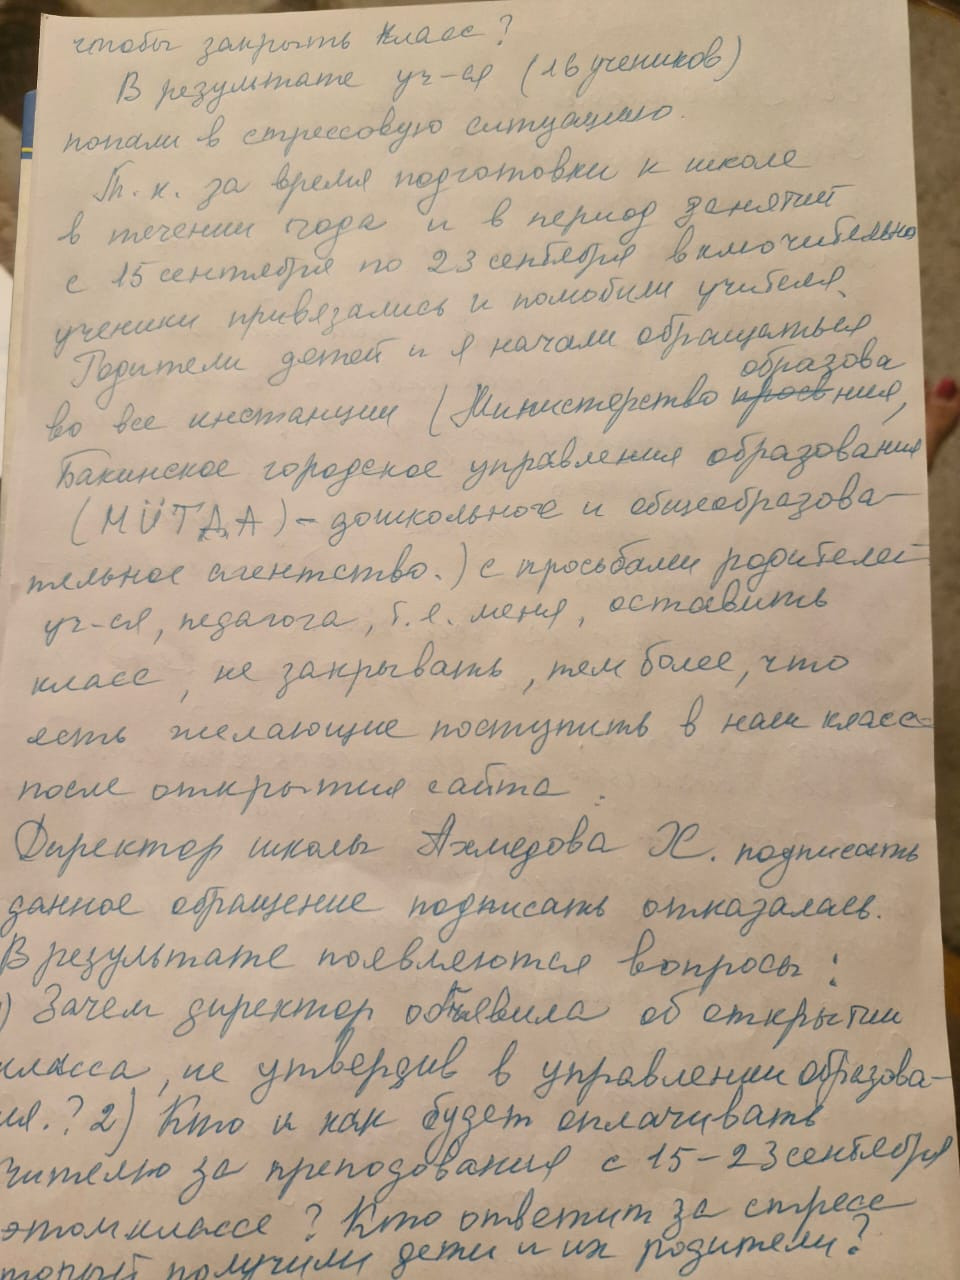 чтобы закрыть класс?
В результате уч-ся (16 учеников)
попали в стрессовую ситуацию.
Т.к. за время подготовки к школе
в течении года и в период занятий
с 15 сентября по 23 сентября включительно
ученики привязались и полюбили учителя.
Родители детей и я начали обращаться
образова
во все инстанции (Министерство ния,
Бакинское городское управления образования
(MÜTДА) - дошкольное и общеобразова-
тельное агентство.) с просьбами родителей
уч-ся, педагога, т.е. меня, оставить
класс, не закрывать, тем более, что
есть желающие поступить в наш класс
после открытия сайта.
Директор школы Ахмедова Х. подписать
данное обращение подписать отказалась.
В результате появляются вопросы:
) Зачем директор объявила об открытии
класса, не утвердив в управлении образова-
ия.? 2) Кто и как будет оплачивать
чителю за преподования с 15-23 сентября
этом классе? Кто ответит за стресс
торый получили дети и их родители?